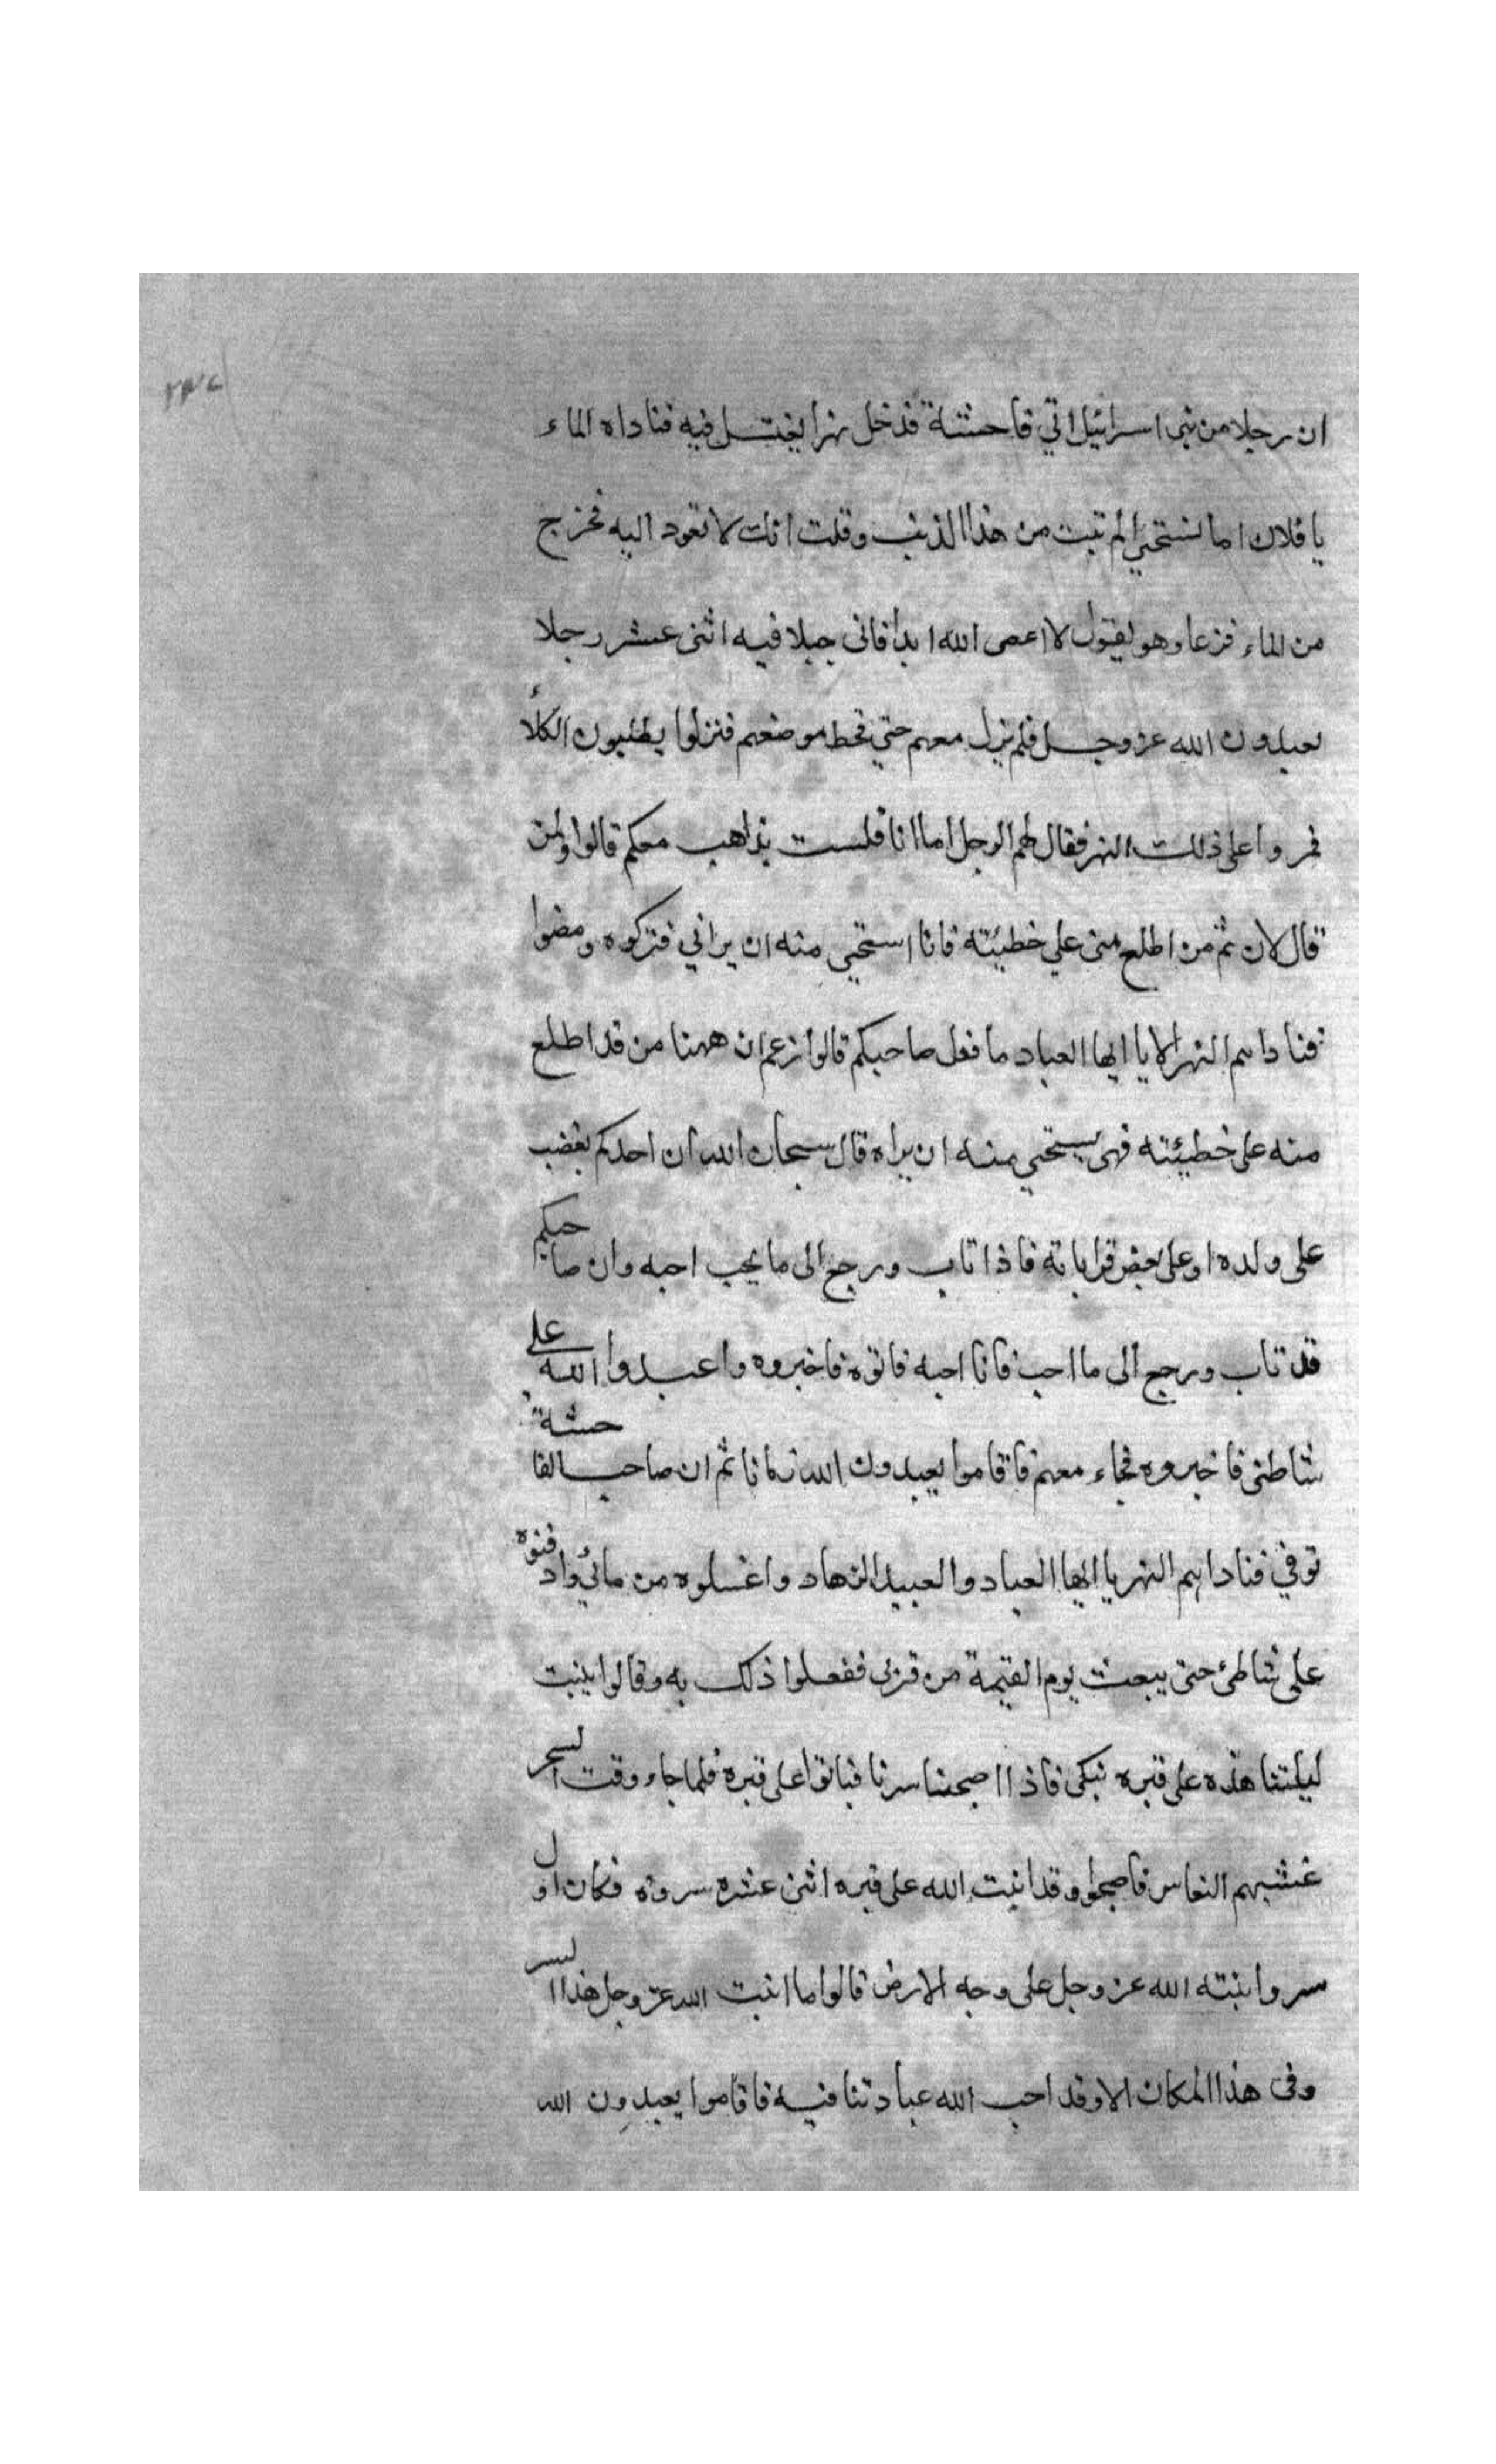 ان رجلا من بنى اسرائيل اتي فاحشة فدخل نهرا يغتسل فيه فناداه الماء
يا فلان اما تستحيى الم تبت من هذا الذنب وقلت انك لا تعود اليه فخرج
من الماء فزعا وهو يقول لا اعصى الله ابدا فاتى جبلا فيه اثنى عشر رجلا
يعبدون الله عز وجل فلم يزل معهم حتي قحط موضعهم فنزلوا يطلبون الكلأ
فمروا على ذلك النهر فقال لهم الرجل اما انا فلست بذاهب معكم قالوا ولمن
قال لان ثم من اطلع منى علي خطيئته فانا استحيي منه ان يراني فتركوه ومضوا
فناداهم النهر الا يا ايها العباد ما فعل صاحبكم قالوا زعم ان ههنا من قد اطلع
منه على خطيئته فهى يستحيي منه ان يراه قال سبحان الله ان احدكم يغضب
على ولده او على بعض قراباته فاذا تاب ورجع الى ما يحب احبه وان صاحبكم
قد تاب ورجع الى ما احب فانا احبه فاتوه فاخبروه واعبدوا الله على
شاطئى فاخبروه فجاء معهم فاقاموا يعبدون الله زمانا ثم ان صاحب الفاحشة
توفي فناداهم النهر يا ايها العباد والعبيد الزهاد واغسلوه من مائي وادفنوه
على شاطئ حتى يبعث يوم القيمة من قربى ففعلوا ذلك به وقالوا ينبت
ليلتنا هذه على قبره نبكى فاذا اصبحنا سرنا فباتوا على قبره فلما جاء وقت السحر
غشيهم النعاس فاصبحوا وقد انبت الله على قبره اثنى عشره سروه فكان اول
سرو انبته الله عز وجل على وجه الارض قالوا ما انبت الله عز وجل هذا السر
وفى هذا المكان الا وقد احب الله عبادتنا فيه فاقاموا يعبدون الله